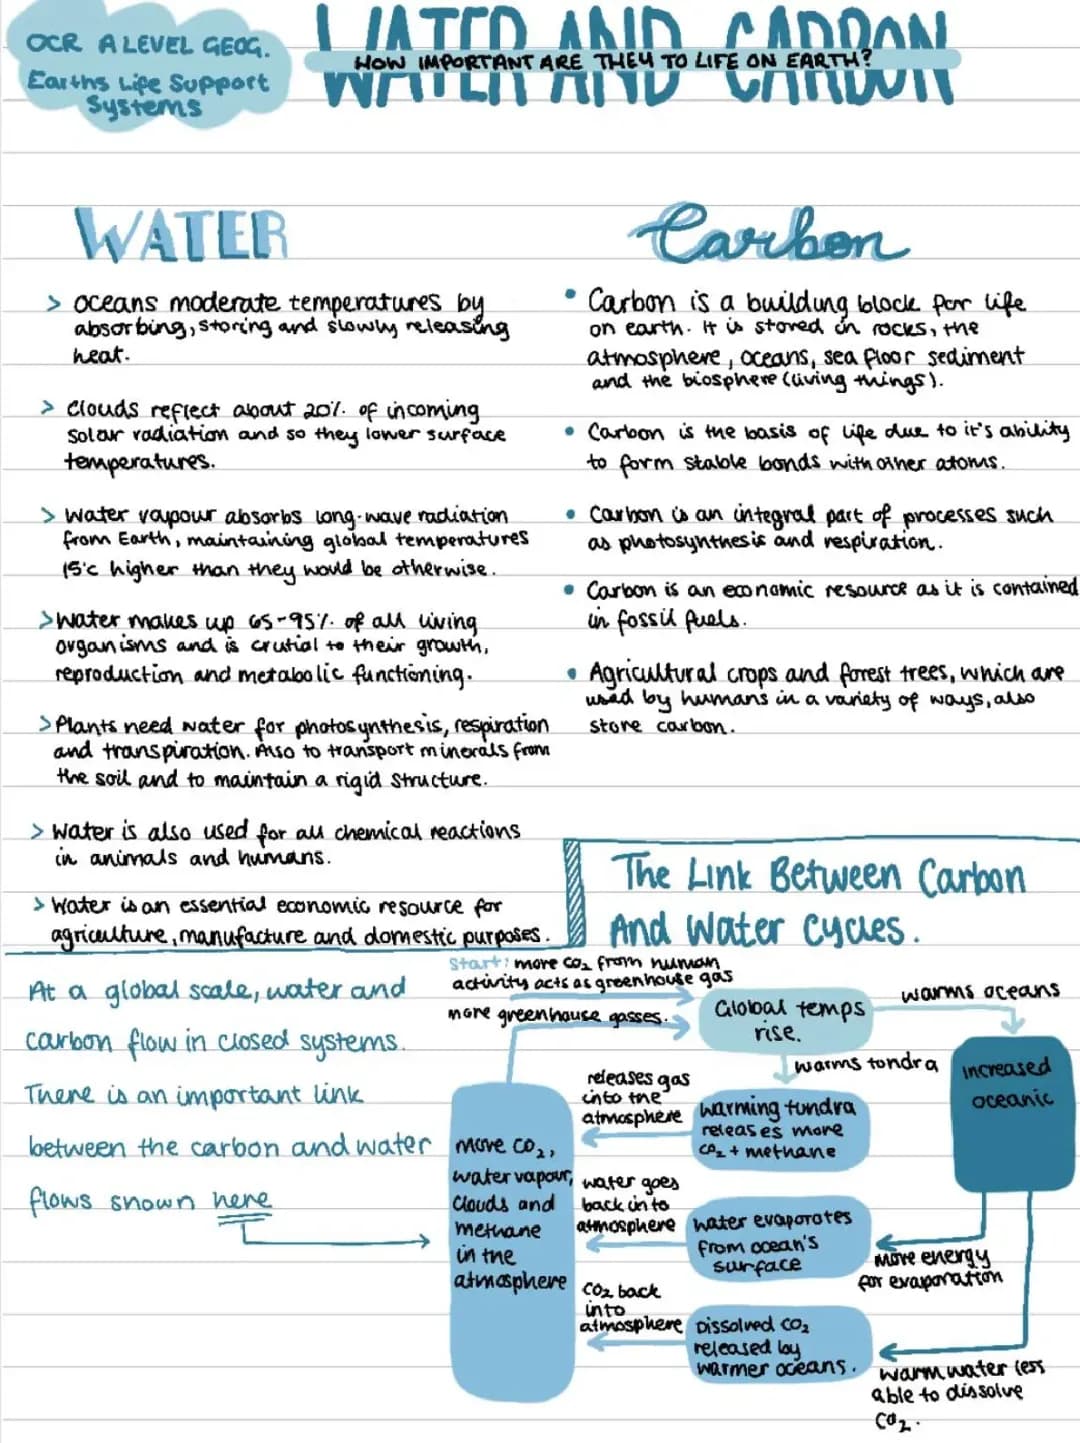 OCR A LEVEL GEOG.
Earths Life Support
Systems
WATER AND CARBON
HOW IMPORTANT ARE THEY TO LIFE ON EARTH?
WATER
> oceans moderate temperatures by
absorbing, storing and slowly releasing
heat.
> Clouds reflect about 20% of incoming
solar radiation and so they lower surface
temperatures.
> Water vapour absorbs long-wave radiation
from Earth, maintaining global temperatures
15°c higher than they would be otherwise.
> Water makes up 65-95% of all living
organisms and is crutial to their growth,
reproduction and metabolic functioning.
> Plants need water for photosynthesis, respiration
and transpiration. Also to transport minerals from
the soil and to maintain a rigid structure.
> Water is also used for all chemical reactions
in animals and humans.
> Water is an essential economic resource for
agriculture, manufacture and domestic purposes.
Carbon
• Carbon is a building block for life
on earth. It is stored in rocks, the
atmosphere, oceans, sea floor sediment
and the biosphere (living things).
• Carbon is the basis of life due to it's ability
to form stable bonds with other atoms.
• Carbon is an integral part of processes such
as photosynthesis and respiration.
• Carbon is an economic resource as it is contained
in fossil fuels.
• Agricultural crops and forest trees, which are
used by humans in a variety of ways, also
store carbon.
The Link Between Carbon
And Water Cycles.
At a global scale, water and
carbon flow in closed systems.
There is an important link
between the carbon and water
flows shown here
Start: more CO₂ from human
activity acts as greenhouse gas
more greenhouse gasses.
Global temps
rise.
warms oceans
warms tundra
increased
oceanic
releases gas
into the
atmosphere
Warming tundra
releases more
CO₂ + methane
more CO₂,
water vapour,
clouds and
methane
in the
atmosphere
water goes
back into
atmosphere
water evaporates
from ocean's
surface
More energy
for evaporation
CO₂ back
into
atmosphere
Dissolved CO₂
released by
warmer oceans.
warm water less
able to dissolve
CO₂.